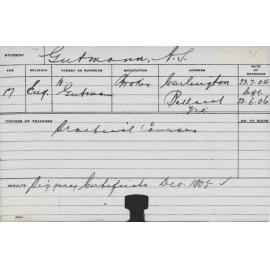 STUDENT Gutmann, A. S.
AGE RELIGION PARENT OR GUARDIAN OCCUPATION ADDRESS DATE OF ENTERING
17 Eng. H. Gutmann Broker Carlington 23.7.04
Ballarat left
Vic 23.6.06
COURSE OF TRAINING NO. OF ROOM
Practical Courses
RESULTS Certificate Dec. 1905 ✓